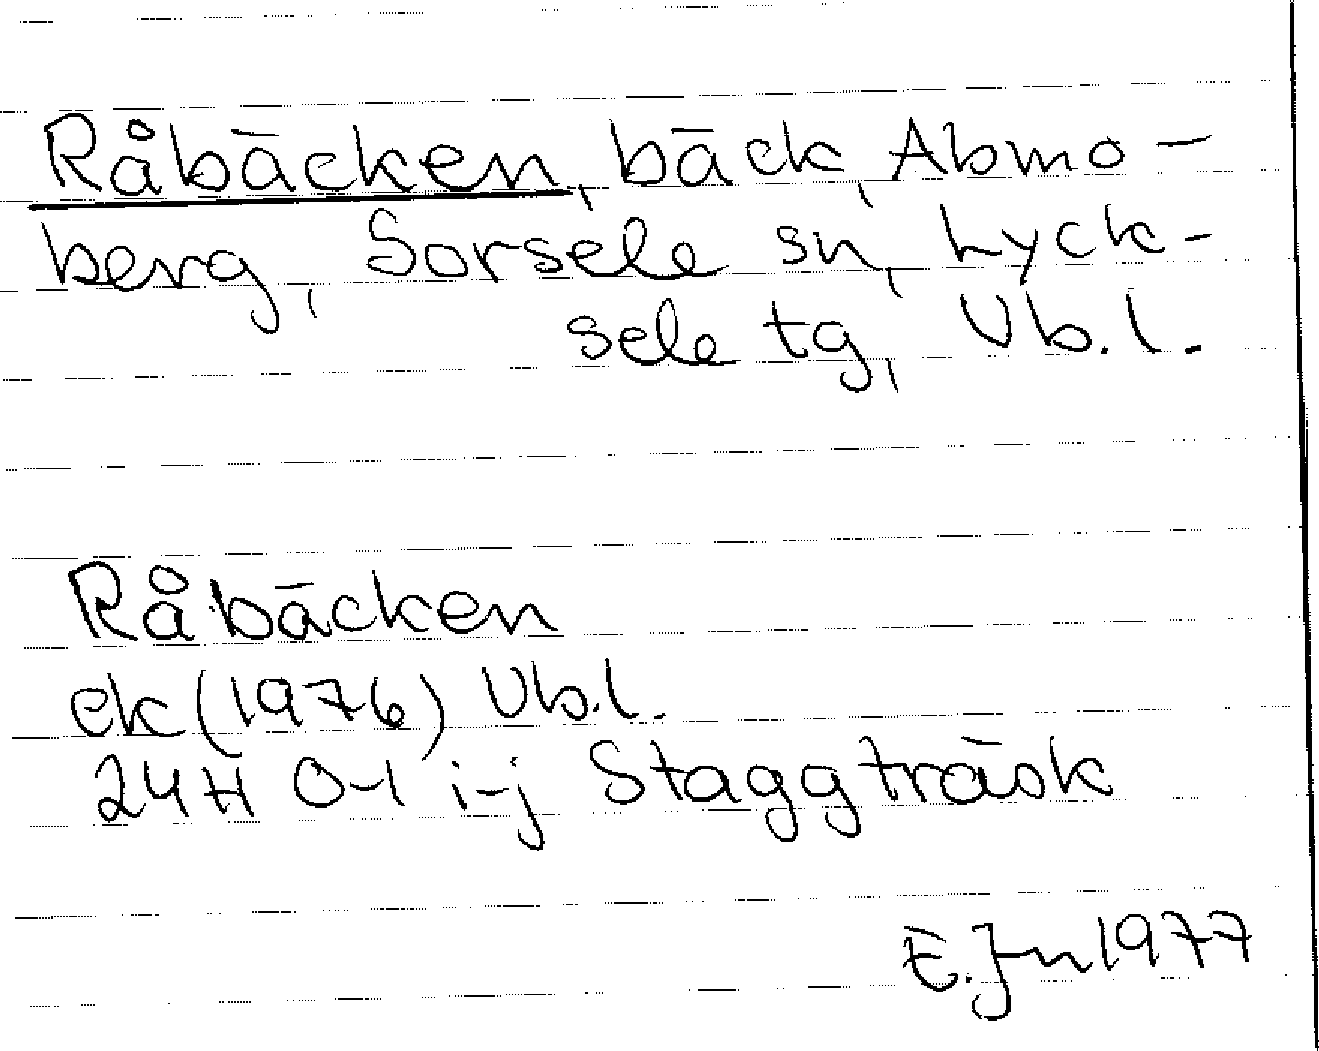 Råbäcken, bäck, Abmo-
berg, Sorsele sn, Lyck-
sele tg, Vb.l.
Råbäcken
ek (1976) Vb.l.
24H 0-1 i-j Staggträsk
E. Jn 1977